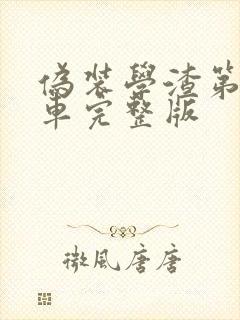 偽裝學渣第
車完整版
微風唐唐